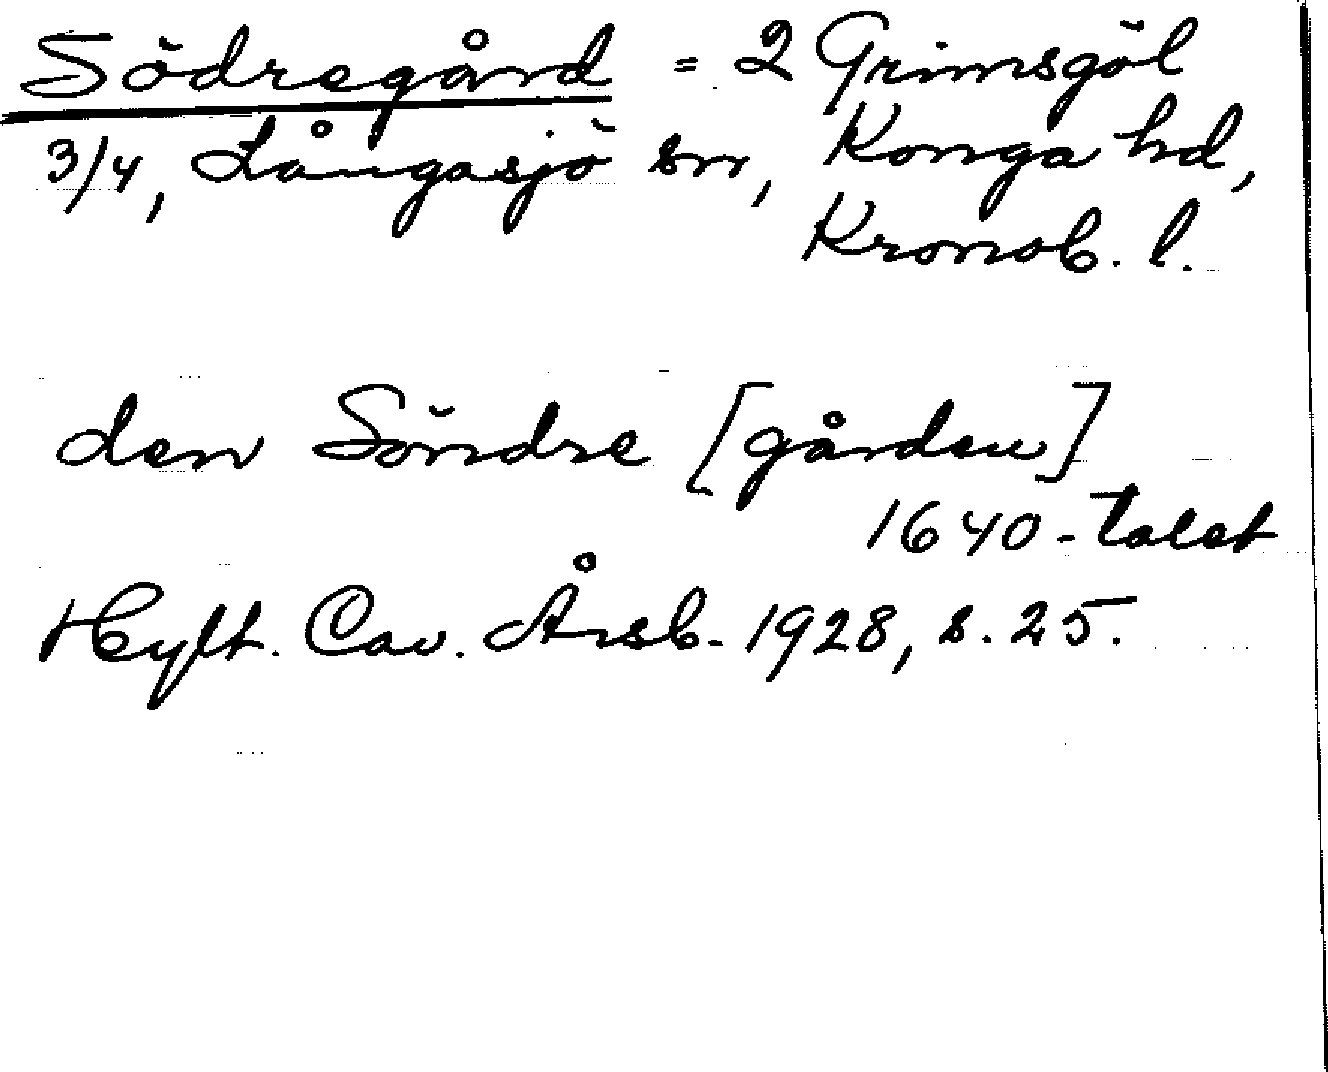 Södregård = 2 Grimsgöl
3/4, Långasjö sn, Konga hd,
Kronob. l.
den Söndre [gården]
1640-talet
Hylt. Cav. Årsb. 1928, s. 25.